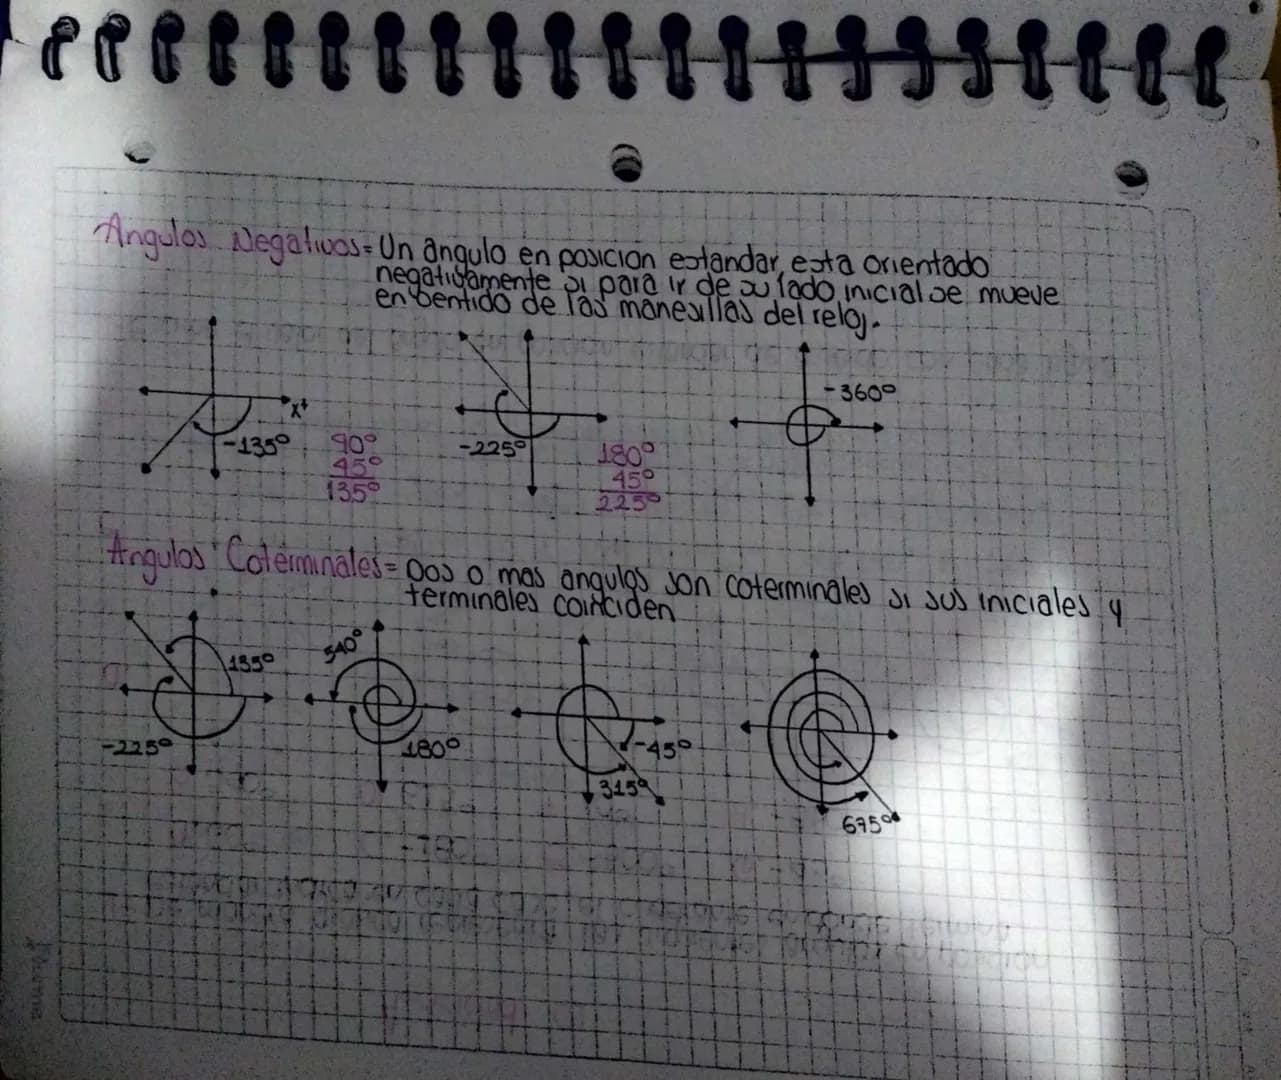 Angulos Negativos = Un angulo en posicion estandar, esta orientado
negativamente si para ir de su lado inicial se mueve
en sentido de las manesillas del reloj.
x+
-135°
90°
45°
135°
-225°
180°
45°
225°
-360°
Angulos Coterminales = Dos o mas angulos son coterminales si sus iniciales y
terminales coinciden
135°
-225°
540°
180°
-45°
315°
675°